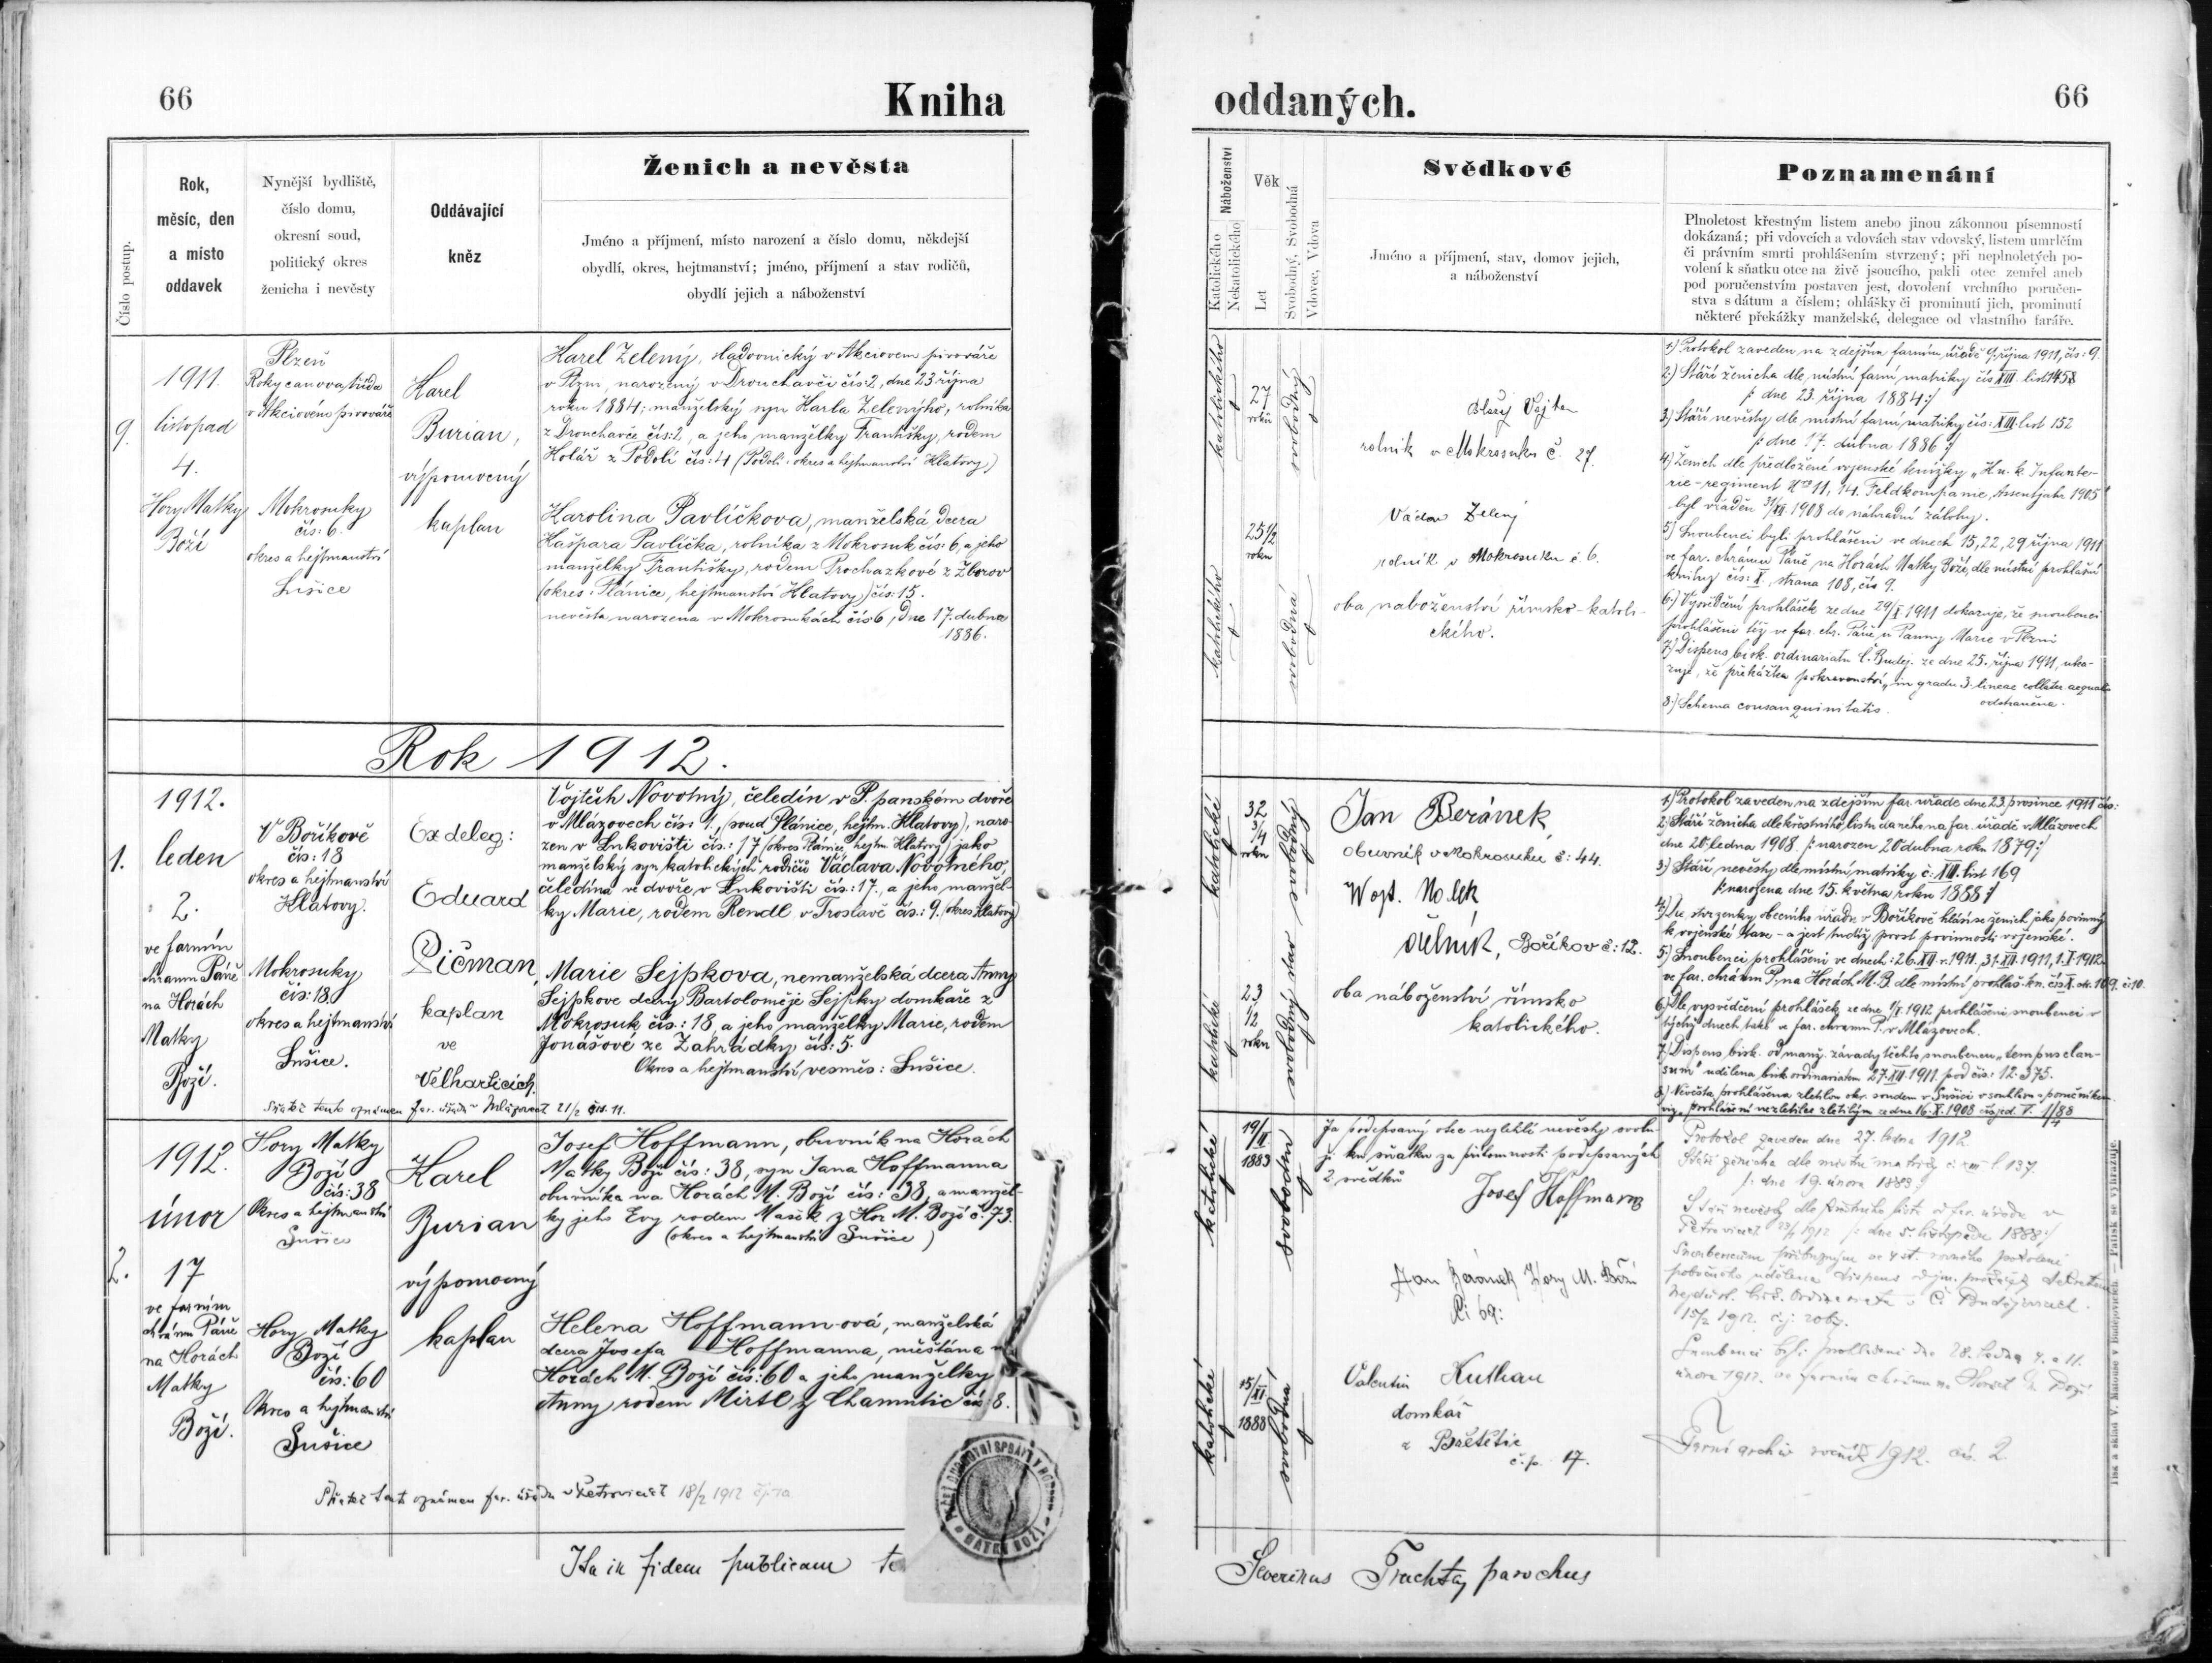 66
Kniha
oddaných.
66
Číslo postup.
Rok,
měsíc, den
a místo
oddavek
Nynější bydliště,
číslo domu,
okresní soud,
politický okres
ženicha i nevěsty
Oddávající
kněz
Ženich a nevěsta
Jméno a příjmení, místo narození a číslo domu, někdejší
obydlí, okres, hejtmanství; jméno, příjmení a stav rodičů,
obydlí jejich a náboženství
Náboženství
Katolického
Nekatolického
Věk
Let
Svobodný, Svobodná
Vdovec, Vdova
Svědkové
Jméno a příjmení, stav, domov jejich,
a náboženství
Poznamenání
Plnoletost křestným listem anebo jinou zákonnou písemností
dokázaná; při vdovcích a vdovách stav vdovský, listem umrlčím
či právním smrti prohlášením stvrzený; při neplnoletých po-
volení k sňatku otce na živě jsoucího, pakli otec zemřel aneb
pod poručenstvím postaven jest, dovolení vrchního poručen-
stva s dátum a číslem; ohlášky či prominutí jich, prominutí
některé překážky manželské, delegace od vlastního faráře.
9.
1911.
listopad
4.
Hory Matky
Boží
Plzeň
Rokycanova třída
v Akciovém pivováře
Mokrosuky
čís: 6.
okres a hejtmanství
Sušice
Karel
Burian,
výpomocný
kaplan
Karel Zelený, sladovnický v Akciovem pivováře
v Plzni, narozený v Drouchavči čís: 2, dne 23 října
roku 1884; manželský syn Karla Zelenýho, rolníka
z Drouchavče čís: 2, a jeho manželky Františky, rodem
Kolář z Podolí čís: 4 (Podolí: okres a hejtmanství Klatovy)
Karolina Pavlíčkova, manželská dcera
Kašpara Pavlíčka, rolníka z Mokrosuk čís: 6, a jeho
manželky Františky, rodem Prochazkové z Zborov
(okres: Plánice, hejtmanství Klatovy) čís: 15.
nevěsta narozena v Mokrosukách čís 6, dne 17. dubna
1886.
katolického
27
roků
svobodný
katolického
25 1/2
roku
svobodná
Blažej Vojta
rolník v Mokrosuku č. 27.
Václav Zelený
rolník v Mokrosuku č 6.
oba naboženství římsko-katoli-
ckého.
1) Protokol zaveden na zdejším farním úřadě 9. října 1911, čís: 9.
2) Stáří ženicha dle místní farní matriky čís XIII. list 145
/: dne 23. října 1884 :/
3) Stáří nevěsty dle místní farní matriky čís: XIII. list 152
/: dne 17. dubna 1886 :/
4) Ženich dle předložené vojenské knížky „K u. k. Infante-
rie-regiment Nro 11, 14. Feldkompanie, Assentjahr 1905“
byl vřaděn 31/XII. 1908 do náhradní zálohy.
5) Snoubenci byli prohlášeni ve dnech 15, 22, 29 října 1911
ve far. chrámu Páně na Horách Matky Boží, dle místní prohlašní
knihy čís: X, strana 108, čís 9.
6) Vysvědčení prohlášek ze dne 29/X 1911 dokazuje, že snoubenci
prohlášeni též ve far. chr. Páně u Panny Marie v Plzni
7) Dispens bisk. ordinariatu Č. Buděj. ze dne 25. října 1911, uka-
zuje, že překážka pokrevenství „in gradu 3. lineae collater. aequali
odstraněna.
8) Schema consanguinitatis.
Rok 1912.
1.
1912.
leden
2.
ve farním
chramu Páně
na Horách
Matky
Boží.
V Boříkově
čís: 18
okres a hejtmanství
Klatovy.
Mokrosuky
čís: 18
okres a hejtmanství
Sušice.
Ex deleg:
Eduard
Pičman,
kaplan
ve
Velharticích.
Vojtěch Novotný, čeledín v P. panském dvoře
v Mlázovech čís: 1., (soud Plánice, hejtm. Klatovy), naro-
zen v Lukovišti čís.: 17 (okres Plánice, hejtm. Klatovy) jako
manželský syn katolických rodičů Václava Novotného,
čeledína ve dvoře v Lukovišti čís.: 17., a jeho manžel-
ky Marie, rodem Rendl v Troslavě čís.: 9. (okres Klatovy)
Marie Sejpkova, nemanželská dcera Anny
Sejpkove dcery Bartoloměje Sejpky domkaře z
Mokrosuk čís.: 18, a jeho manželky Marie, rodem
Jonášové ze Zahrádky čís: 5.
Okres a hejtmanství vesměs: Sušice.
Sňatek tento oznámen far. úřadu v Mlázovech 21/2 čís. 11.
katolické
32
3/4
roku
svobodný
katolické
23
7/12
roku
svobodný stav
Jan Beránek,
obuvník v Mokrosuku č: 44.
Wojt. Nolek
dělník, Boříkov č: 12.
oba náboženství římsko
katolického.
1) Protokol zaveden na zdejším far. uřadě dne 23. prosince 1911 čís:
2) Stáří ženicha dle křestního listu daného na far. úřadě v Mlázovech
dne 20. ledna 1908. /: narozen 20 dubna roku 1879 :/
3) Stáří nevěsty dle místní matriky č: XIII. list 169
/: narozena dne 15. května roku 1888 :/
4) Dle stvrzenky obecního úřadu v Boříkově hlásí se ženich jako povinný
k vojenské taxe - a jest tudíž prost povinnosti vojenské.
5) Snoubenci prohlášeni ve dnech: 26. XII. r. 1911, 31. XII. 1911, 1. I. 1912
ve far. chrámu P. na Horách M. B. dle místní prohláš. kn. čís X. str. 109. č: 10.
6) Dle vysvědčení prohlášek ze dne 1/I. 1912 prohlášeni snoubenci v
týchž dnech také ve far. chramu P. v Mlázovech.
7) Dispens bisk. od manž. závady těchto snoubenců „tempus clau-
sum“ udělena bisk ordinariatem 27. XII. 1911 pod čís.: 12.375.
8) Nevěsta prohlášena zletilou okr. soudem v Sušici v souhlasu s poručníkem
viz. „prohlášení nezletilce zletilým“ ze dne 16. X. 1908 čís. jed. V. 1/88
2.
1912.
únor
17
ve farním
chrámu Páně
na Horách
Matky
Boží.
Hory Matky
Boží
čís: 38
Okres a hejtmanství
Sušice
Hory Matky
Boží
čís: 60
Okres a hejtmanství
Sušice
Karel
Burian
výpomocný
kaplan
Josef Hoffmann, obuvník na Horách
Matky Boží čís: 38, syn Jana Hoffmanna
obuvníka na Horách M. Boží čís: 38, a manžel-
ky jeho Evy rodem Mašek z Hor M. Boží č. 73.
(okres a hejtmanství Sušice)
Helena Hoffmann-ová, manželská
dcera Josefa Hoffmanna, měšťána n
Horách M. Boží čís: 60 a jeho manželky
Anny rodem Mirtl z Chamutic čís: 8.
Sňatek tento oznámen far. úřadu v Petrovicích 18/2 1912
katolické
19/II
1883
svoboden
katolické
15/XI
1888
svobodná
Já podepsaný otec nezletilé nevěsty svolu-
ji ku sňatku za přítomnosti podepsaných
2 svědků
Josef Hoffmann
Jan Beránek Hory M. Boží
Či 69:
Valentin Kuthan
domkář
z Břetětic
č. p. 17.
Protokol zaveden dne 27. ledna 1912.
Stáří ženicha dle místní matriky č XIII l. 137.
/: dne 19. února 1883 :/
Stáří nevěsty dle křestního listu od far. úřadu v
Petrovicích 23/1 1912 /: dne 5. listopadu 1888 :/
15/2 1912.
Snoubenci byli prohlášeni dne 28. ledna 4. a 11.
února 1912. ve farním chrámu na Horách M. Boží
Farní archiv ročník 1912. čís. 2
Ita in fidem publicam te
Severinus Truchtaj parochus
MATKY BOŽÍ
Tisk a sklad V. Matouše v Budějovicích. — Patisk se vyhrazuje.